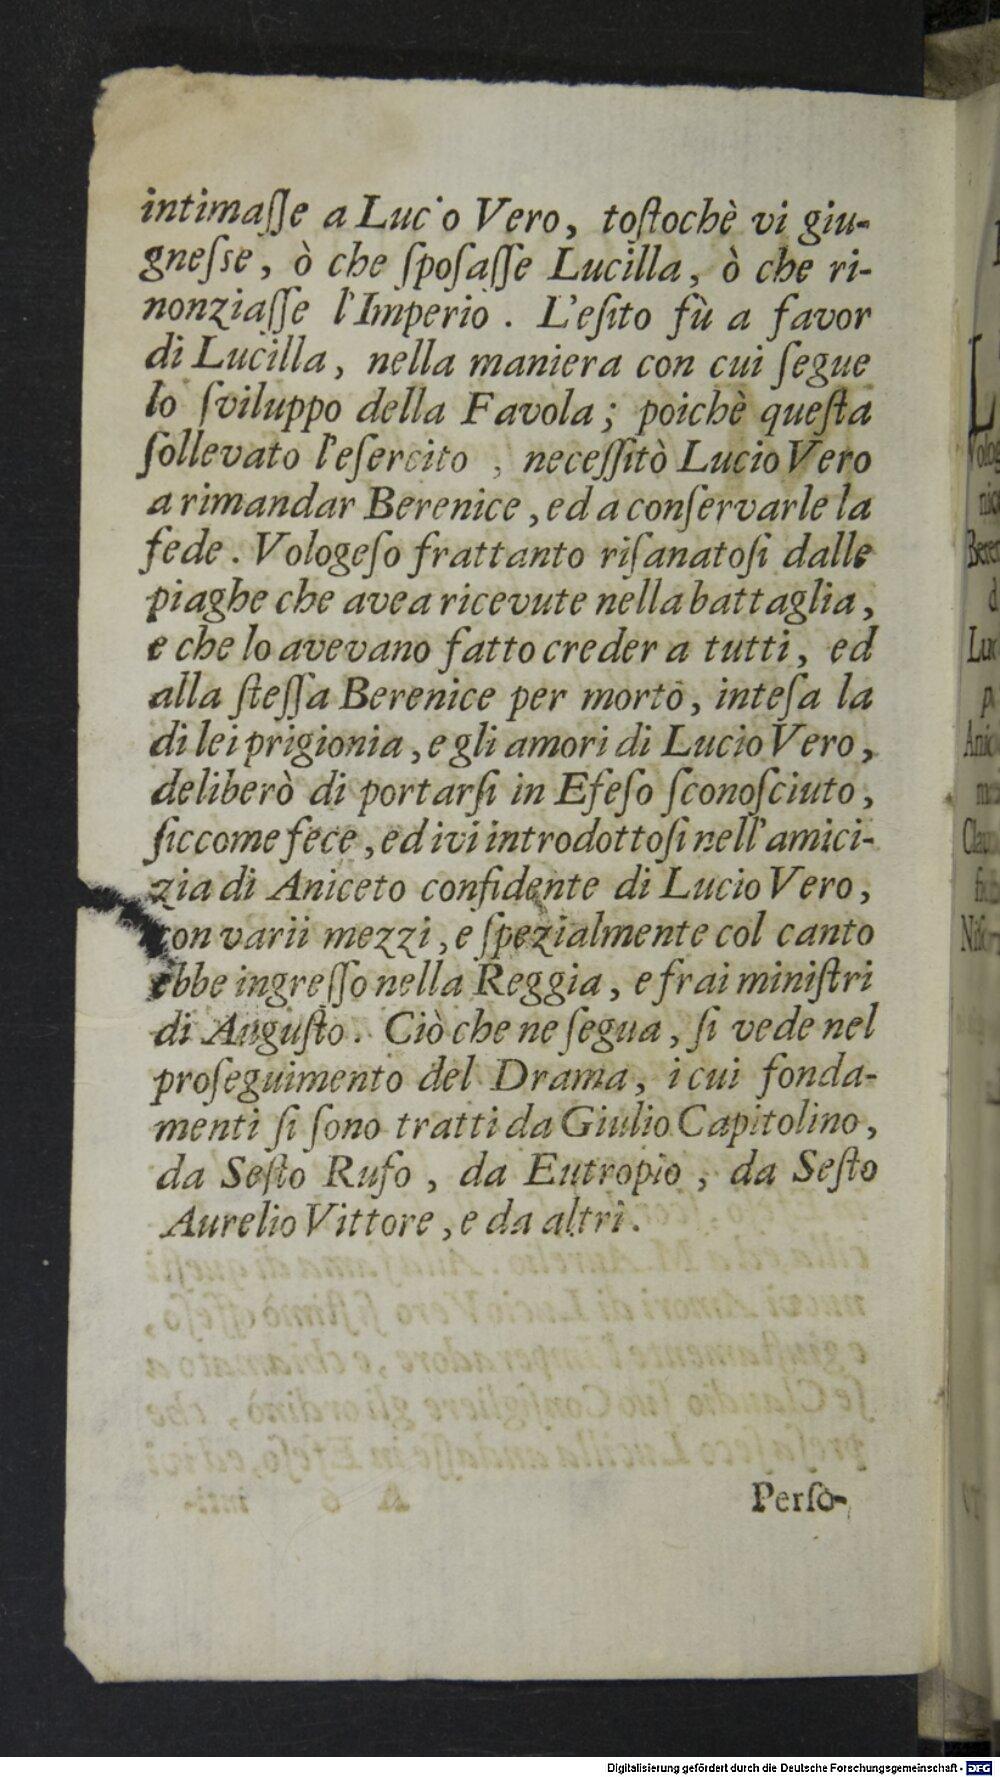 intimaſſe a Luc o Vero, toſtochè vi giu-
gneſse, ò che ſpoſaſſe Lucilla, ò che ri-
nonziaſſe l'Imperio. L'eſito fù a favor
di Lucilla, nella maniera con cui ſegue
lo ſviluppo della Favola; poichè queſta
ſollevato l'eſercito, neceſſitò Lucio Vero
a rimandar Berenice, ed a conſervarle la
fede. Vologeſo frattanto riſanatoſi dalle
piaghe che avea ricevute nella battaglia,
e che lo avevano fatto creder a tutti, ed
alla ſteſſa Berenice per morto, inteſa la
di lei prigionia, e gli amori di Lucio Vero,
deliberò di portarſi in Efeſo ſconoſciuto,
ſiccome fece, ed ivi introdottoſi nell'amici-
zia di Aniceto confidente di Lucio Vero,
con varii mezzi, e ſpezialmente col canto
ebbe ingreſſo nella Reggia, e frai miniſtri
di Auguſto. Ciò che ne ſegua, ſi vede nel
proſeguimento del Drama, i cui fonda-
menti ſi ſono tratti da Giulio Capitolino,
da Seſto Rufo, da Eutropio, da Seſto
Aurelio Vittore, e da altri.
Perſo-
Digitalisierung gefördert durch die Deutsche Forschungsgemeinschaft - DFG